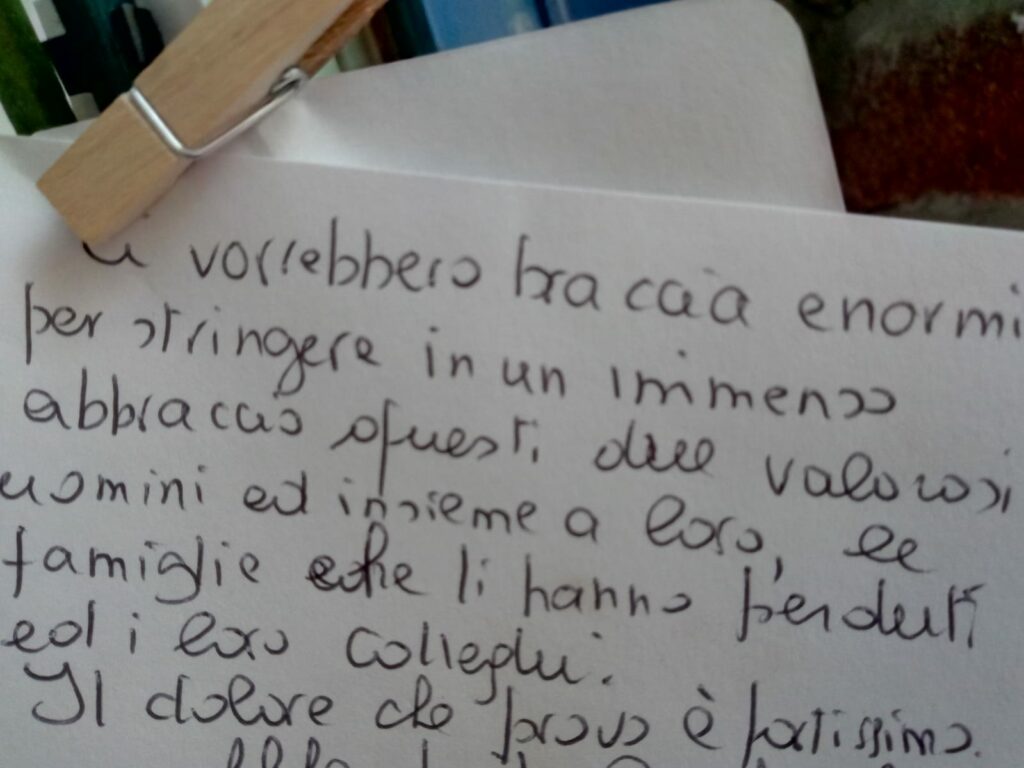 vorrebbero braccia enormi
per stringere in un immenso
abbraccio questi due valorosi
uomini ed insieme a loro, le
famiglie che li hanno perduti
ed i loro colleghi.
Il dolore che provo è fortissimo.